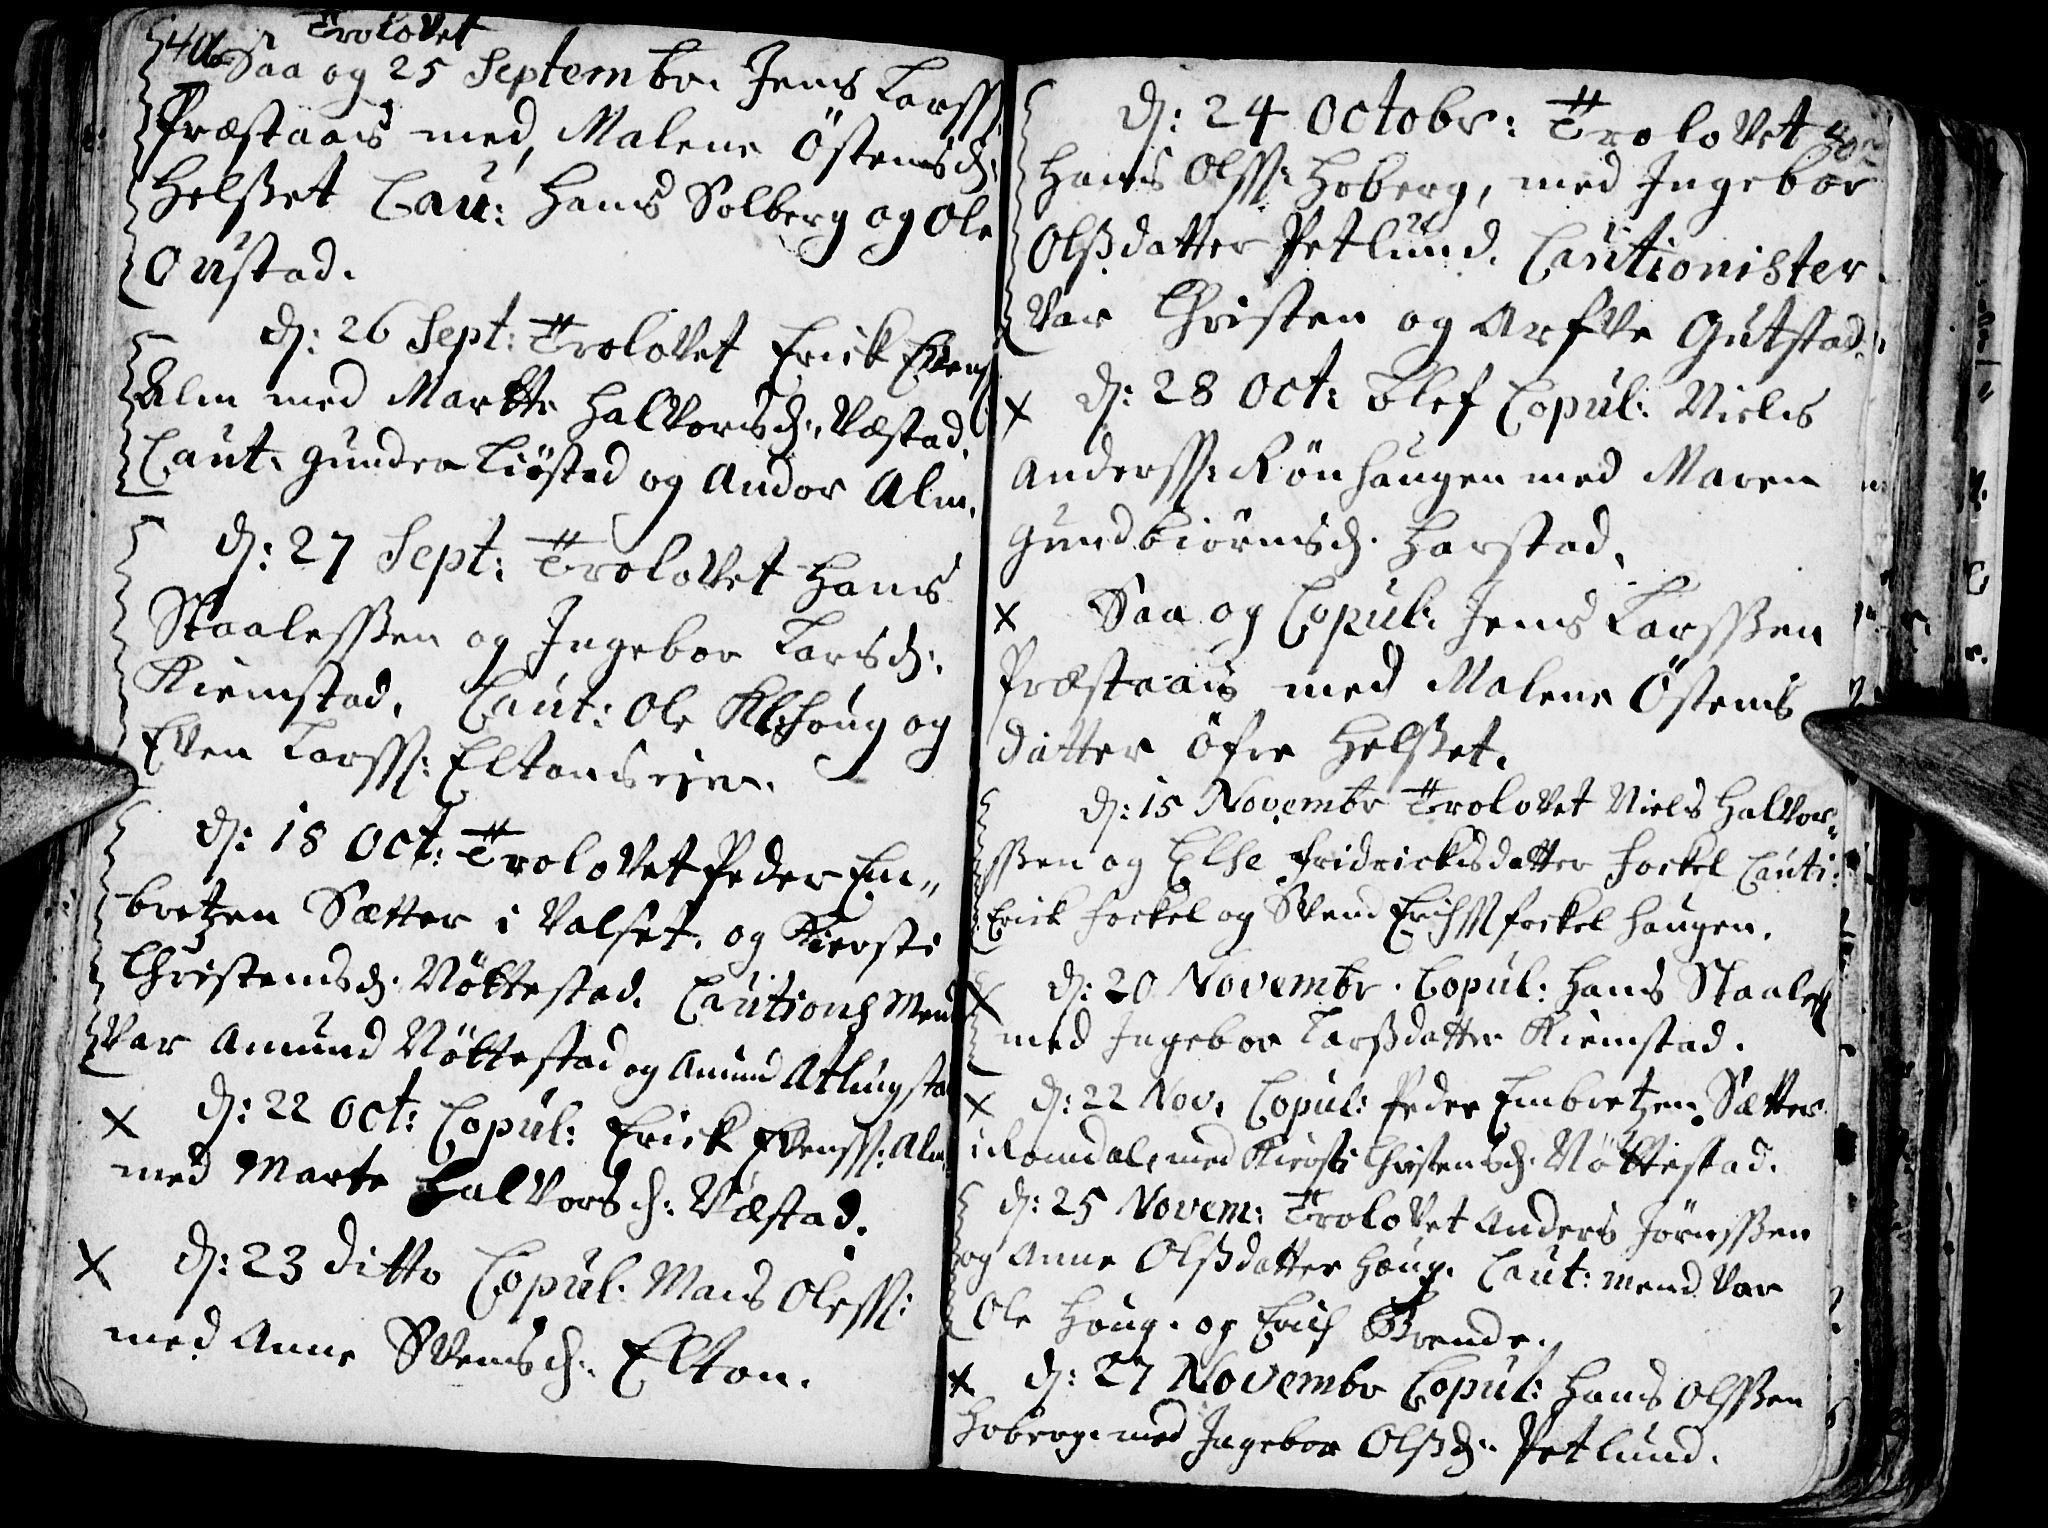 Trolovet
Saa og 25 Septembr. Jens Larss:
Præstaais med, Malene Östensd:
Helsset Cau: Hans Solberg og Ole
Onstad.
d: 26 Sept: Trolovet Erick Evens
Alm med Martte Halvorsd: Væstad.
Caut. Gunder Liöstad og Andor Alm.
d: 27 Sept: Trolovet Hans
Staalessen og Ingebor Larsd:
Kiemstad. Caut: Ole Klohoug og
Even Larss: Eltonseier.
d: 18 Oct: Trolovet Peder Em„
bretzen Sætter i Valset. og Kiersti
Christensd: Nöttestad. Cautions Mend
var Amund Nöttestad og Amund Atlungsta
d: 22 Oct: Copul: Erick Evenss: Alm
med Marte Halvorsd: Væstad.
d: 23 ditto Copul. Mads Oless:
med Anne Svensd: Elton.
d: 24 Octobr: Trolovet
Hans Olss: Hoberg, med Ingebor
Olssdatter Petlund. Cautionister
var Christen og Arfve Gutstad.
d: 28 Oct: blef Copul: Niels
Anderss: Rönhaugen med Maren
Gundbiörnsd. Harstad.
Saa og Copul. Jens Larssen
Præstaais med Malene Östens
datter Öfre Helsset.
d: 15 Novembr Trolovet Niels Halvor„
ssen og Else Fridricksdatter Fockel Cauti:
Erick Fockel og Svend Erichss Fockelhaugen.
d: 20 Novembr. Copul: Hans Staaless
med Ingebor Larssdatter Kiemstad.
d: 22 Nov. Copul: Peder Embretzen Sætter
i Romdal, med Kiersti Christensd. Nöttestad.
d: 25 Novem: Trolovet Anders Jörnssen
og Anne Olssdatter Houg. Caut: mend var
Ole Houg. og Erich Grende.
d: 27 Novembr Copul: Hans Olssen
Hoberg. med Ingebor Olssd: Petlund.